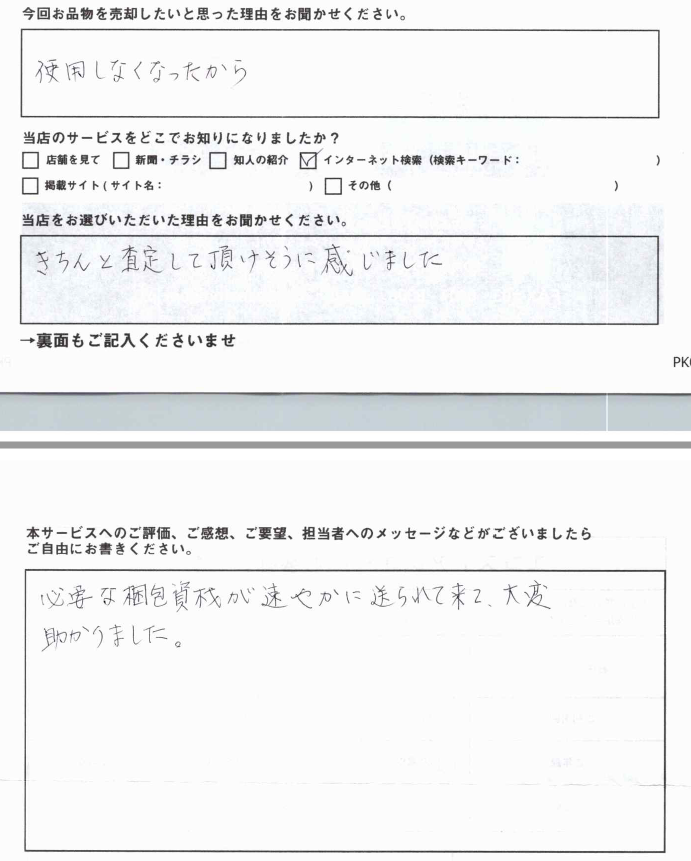 今回お品物を売却したいと思った理由をお聞かせください。
使用しなくなったから
当店のサービスをどこでお知りになりましたか？
□ 店舗を見て □ 新聞・チラシ □ 知人の紹介 ☑ インターネット検索（検索キーワード： ）
□ 掲載サイト（サイト名： ） □ その他（ ）
当店をお選びいただいた理由をお聞かせください。
きちんと査定して頂けそうに感じました
→裏面もご記入くださいませ
本サービスへのご評価、ご感想、ご要望、担当者へのメッセージなどがございましたら
ご自由にお書きください。
必要な梱包資材が速やかに送られて来て、大変
助かりました。